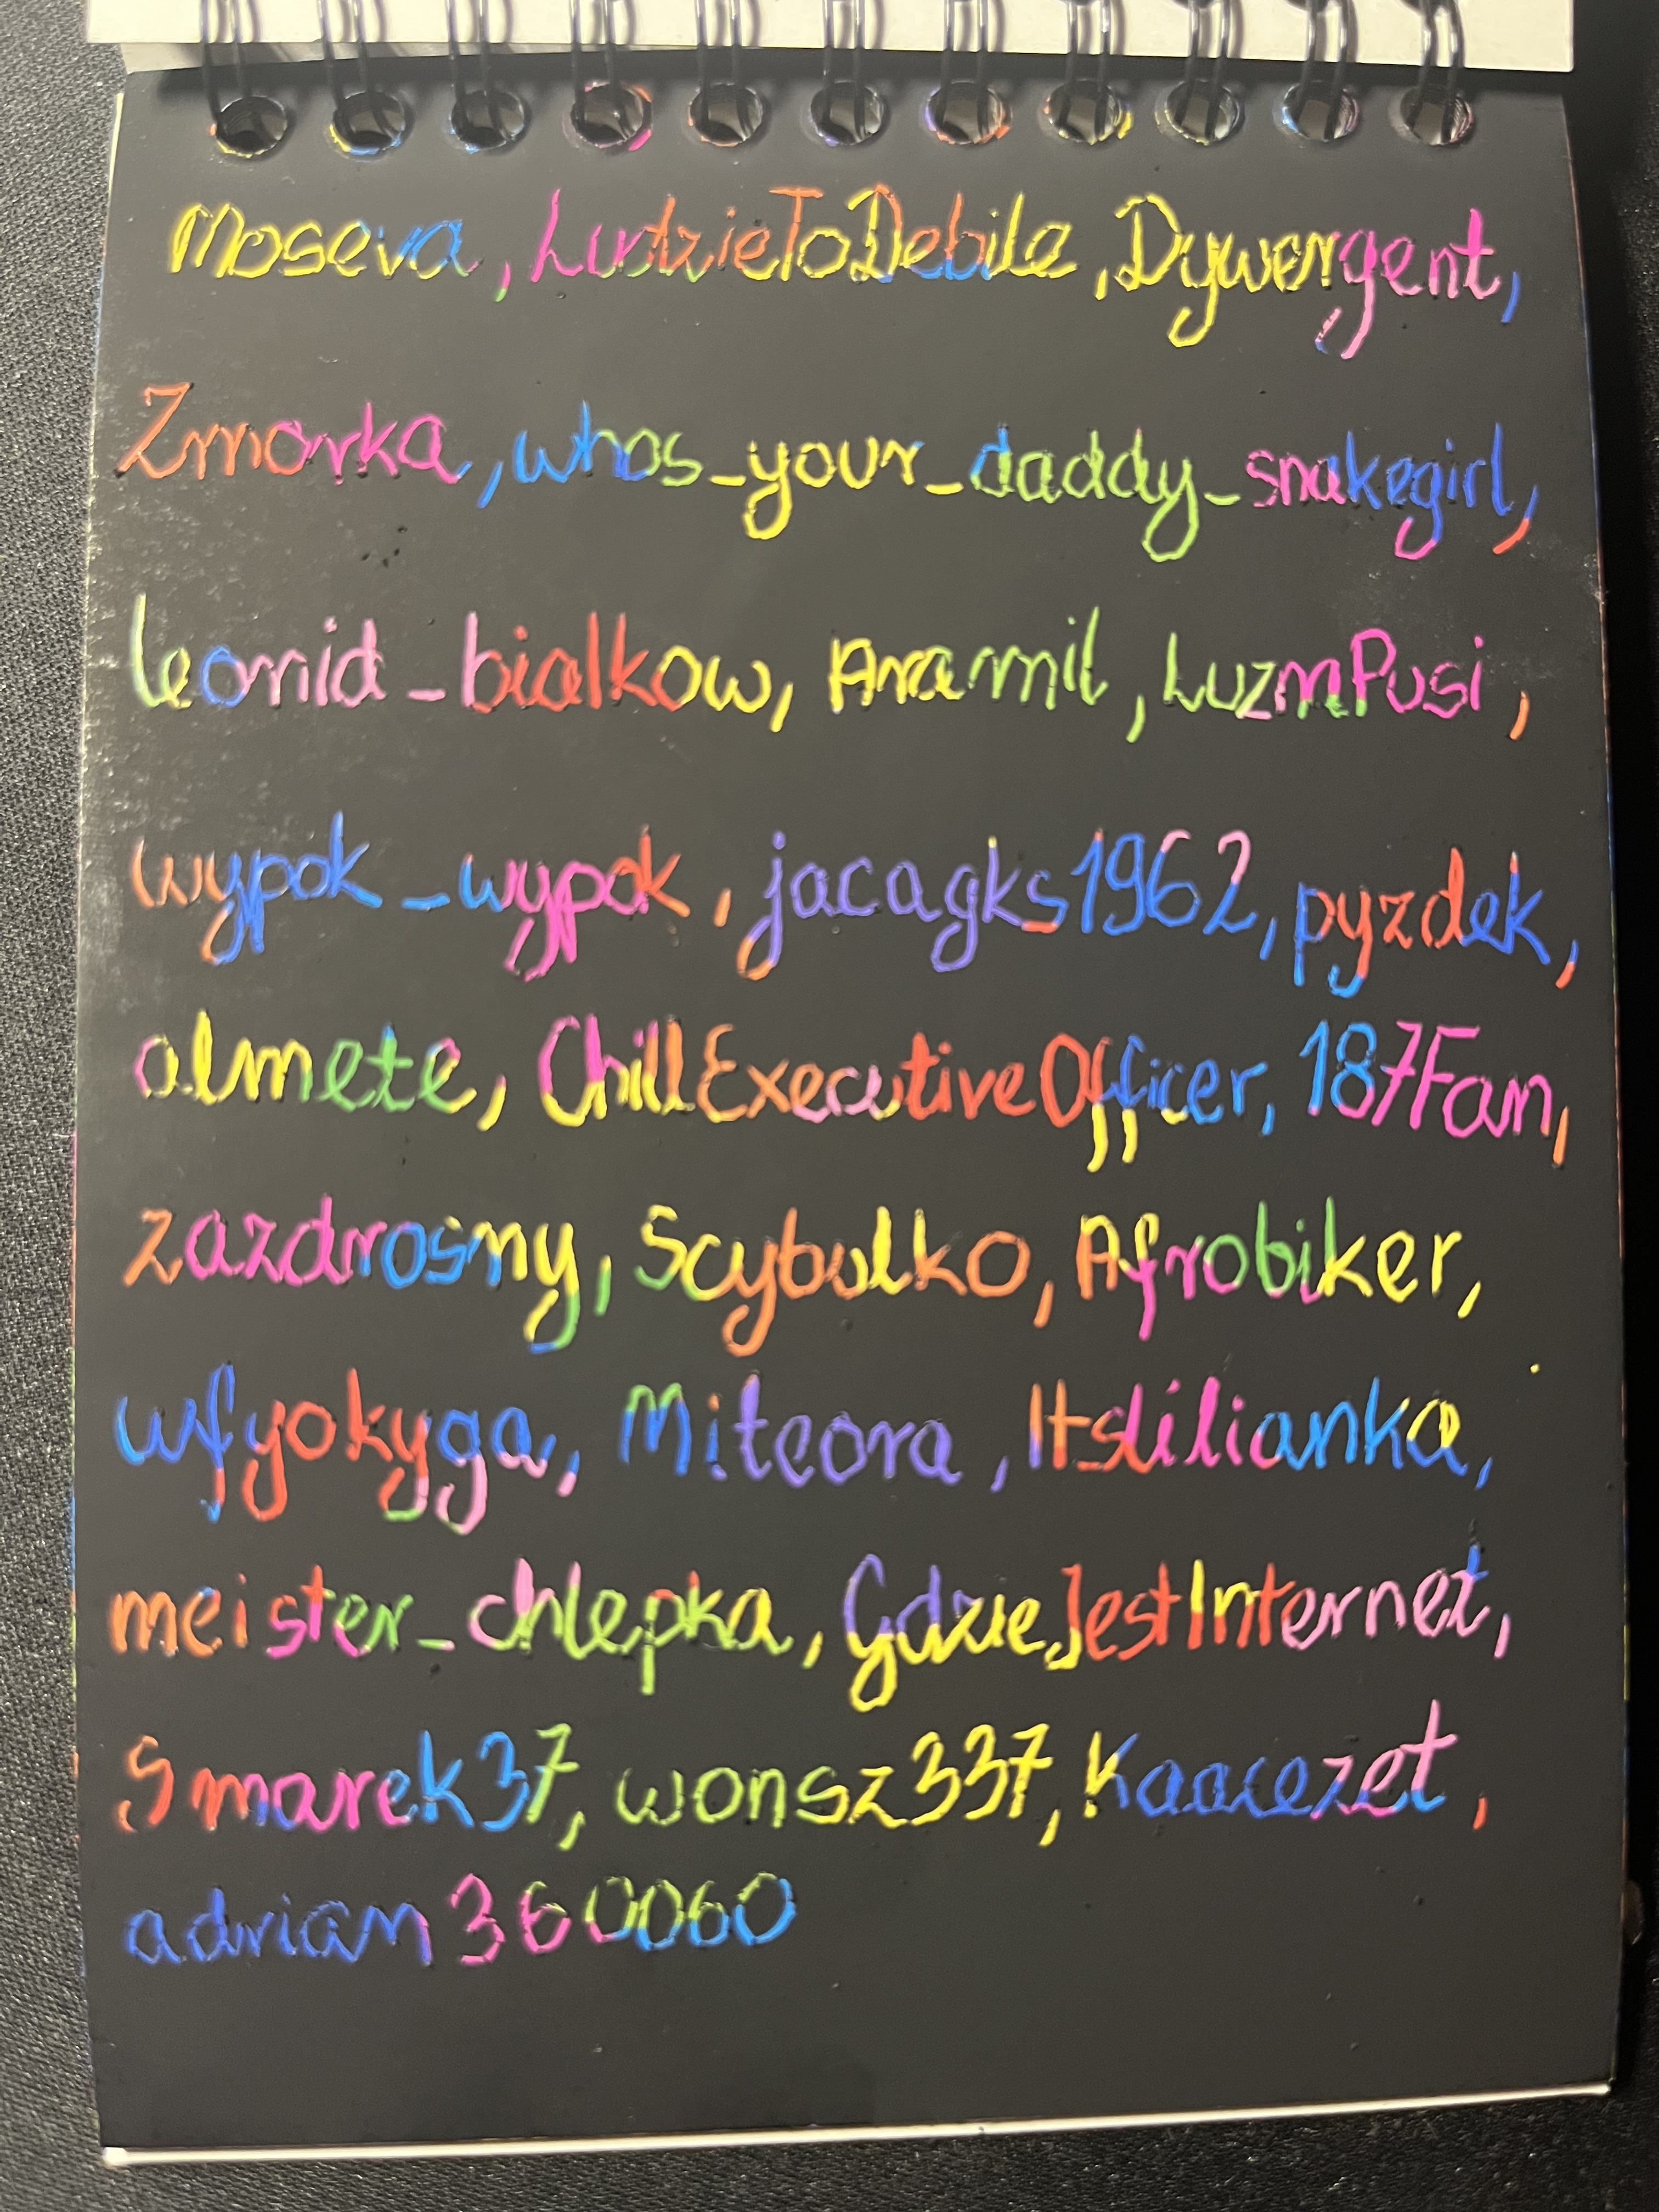 Moseva, LudzieToDebile, Dywergent,
Zmorka, whos_your_daddy_snakegirl,
leonid_bialkow, Aramil, LuzmPusi,
wypok_wypok, jacagks1962, pyzdek,
almete, ChillExecutiveOfficer, 187Fan,
zazdrosny, Scybulko, Afrobiker,
wfyokyga, Miteora, Itslilianka,
meister_chlepka, GdzieJestInternet,
Smarek37, wonsz337, Kaacezet,
adrian360060